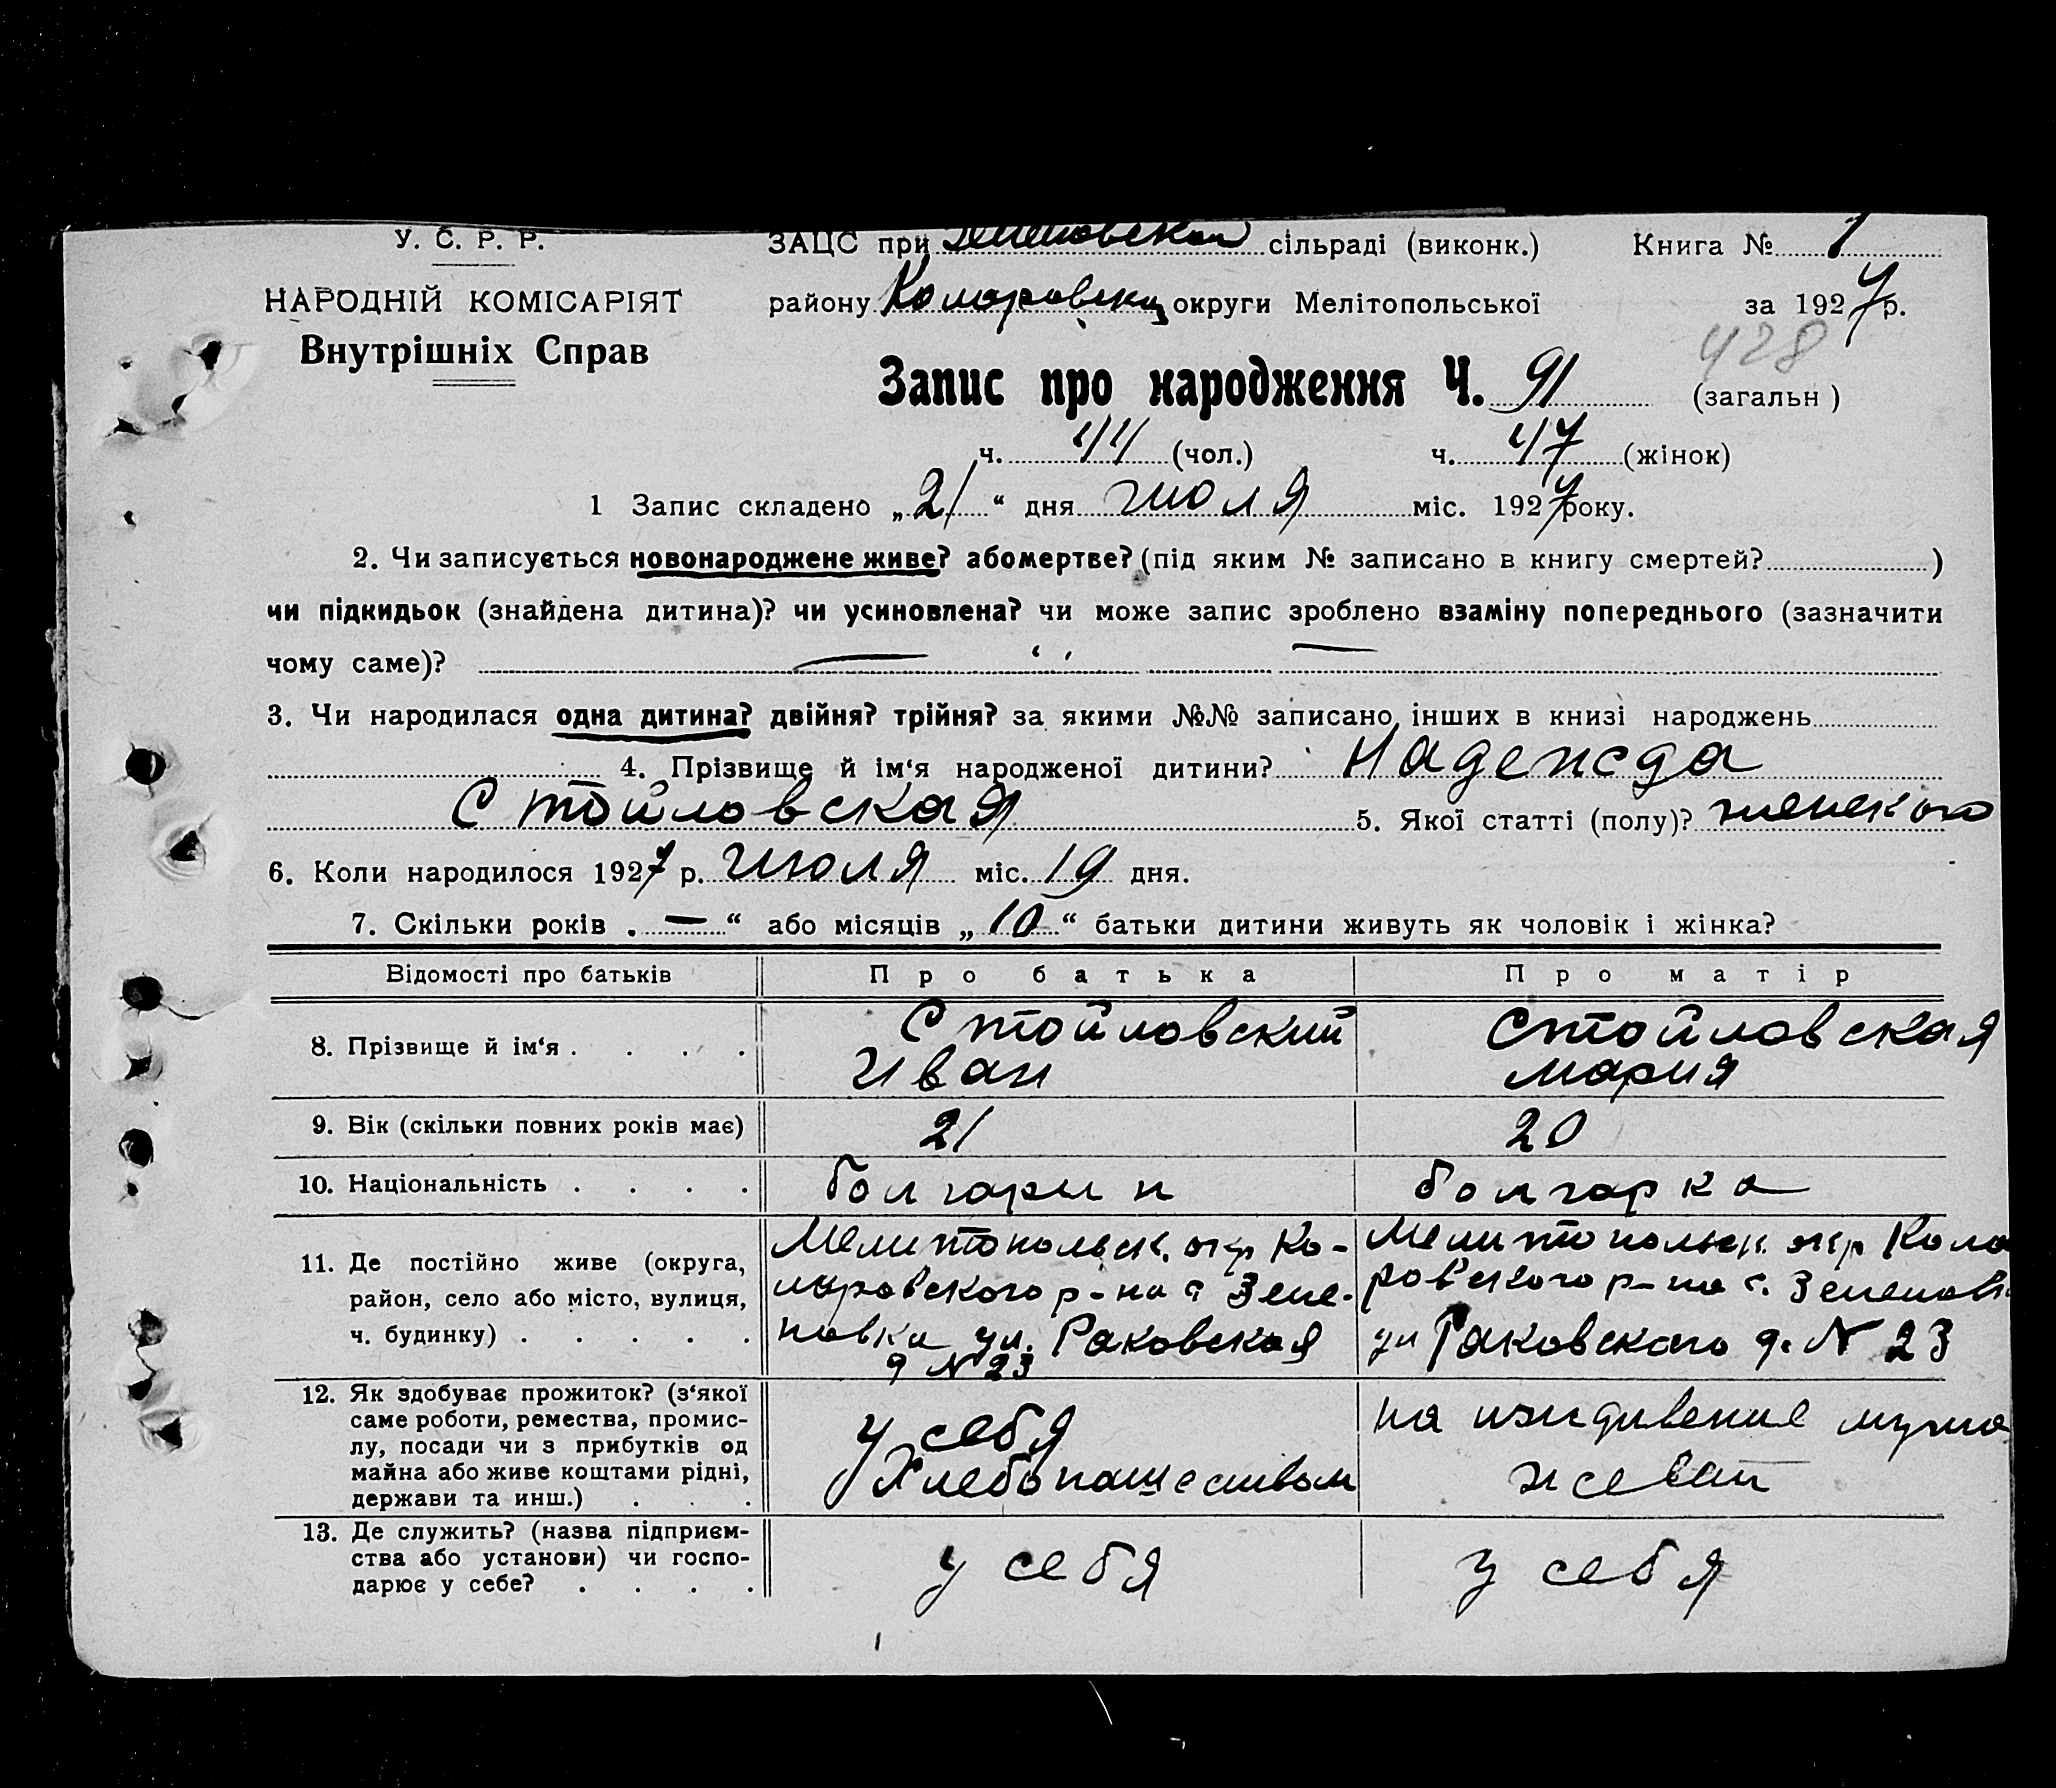 У. С. Р. Р.
НАРОДНІЙ КОМІСАРІЯТ
Внутрішніх Справ
ЗАЦС при сільраді (виконк.) Книга № 1
району Коларовск округи Мелітопольської за 1927 р.
428
Запис про народження Ч. 91 (загальн )
ч. 44 (чол.) ч. 47 (жінок)
1 Запис складено „ 21 “ дня июля міс. 1927 року.
2. Чи записується новонароджене живе? або мертве? (під яким № записано в книгу смертей? )
чи підкидьок (знайдена дитина)? чи усиновлена? чи може запис зроблено взаміну попереднього (зазначити
чому саме)? — —
3. Чи народилася одна дитина? двійня? трійня? за якими №№ записано інших в книзі народжень
4. Прізвище й ім‘я народженої дитини? Надежда
Стойловская 5. Якої статті (полу)? женского
6. Коли народилося 1927 р. июля міс. 19 дня.
7. Скільки років „ — “ або місяців „ 10 “ батьки дитини живуть як чоловік і жінка?
Відомості про батьків Про батька Про матір
8. Прізвище й ім‘я . . . . Стойловский Стойловская
Иван Мария
9. Вік (скільки повних років має) 21 20
10. Національність . . . . болгарин болгарка
11. Де постійно живе (округа,
район, село або місто, вулиця,
ч. будинку) . . . . .
Мелитопольск. окр Ко-
ларовского р-на с Зеле-
новка ул. Раковская
д N 23
Мелитопольск. окр Кола
ровского р-на с. Зеленовк
ул Раковского д. N 23
12. Як здобуває прожиток? (з‘якої
саме роботи, ремества, промис-
лу, посади чи з прибутків од
майна або живе коштами рідні,
держави та инш.) . . .
у себя
Хлебопашеством
на иждивение мужа
живет
13. Де служить? (назва підприєм-
ства або установи) чи госпо-
дарює у себе? . . . .
у себя
у себя